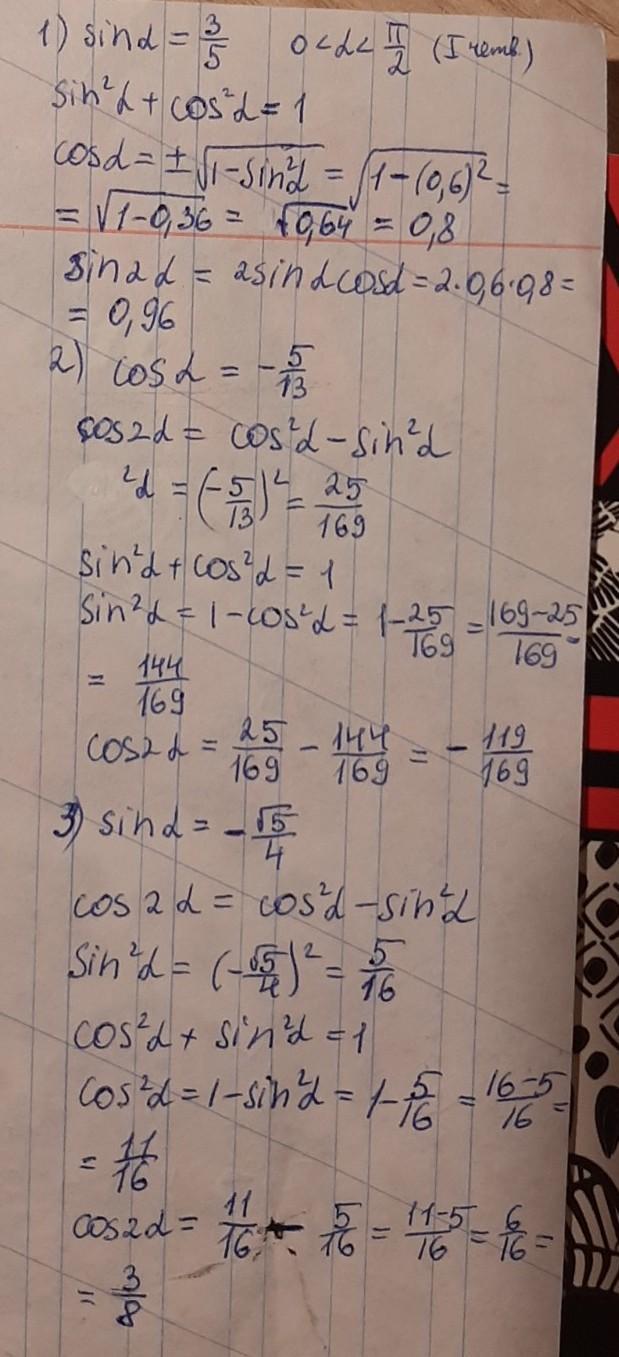 1) sinα = 3/5 0<α<π/2 (I четв.)
sin²α + cos²α = 1
cosα = ±√(1-sin²α) = √(1-(0,6)²) =
= √(1-0,36) = √(0,64) = 0,8
sin2α = 2sinαcosα = 2·0,6·0,8 =
= 0,96
2) cosα = -5/13
cos2α = cos²α - sin²α
²α = (-5/13)² = 25/169
sin²α + cos²α = 1
sin²α = 1-cos²α = 1-25/169 = (169-25)/169 =
= 144/169
cos2α = 25/169 - 144/169 = -119/169
3) sinα = -√5/4
cos2α = cos²α - sin²α
sin²α = (-√5/4)² = 5/16
cos²α + sin²α = 1
cos²α = 1-sin²α = 1-5/16 = (16-5)/16 =
= 11/16
cos2α = 11/16 - 5/16 = (11-5)/16 = 6/16 =
= 3/8